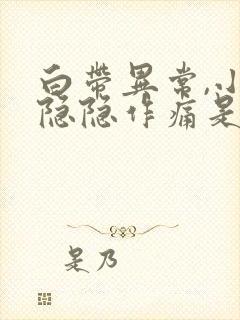 白带异常,小
隐隐作痛是
是乃